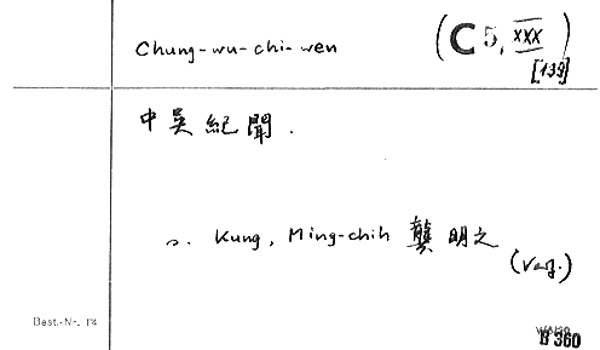 Chung-wu-chi-wen (C 5, XXX)
[139]
中吳紀聞.
Kung, Ming-chih 龔明之
Best.-Nr.
B 360